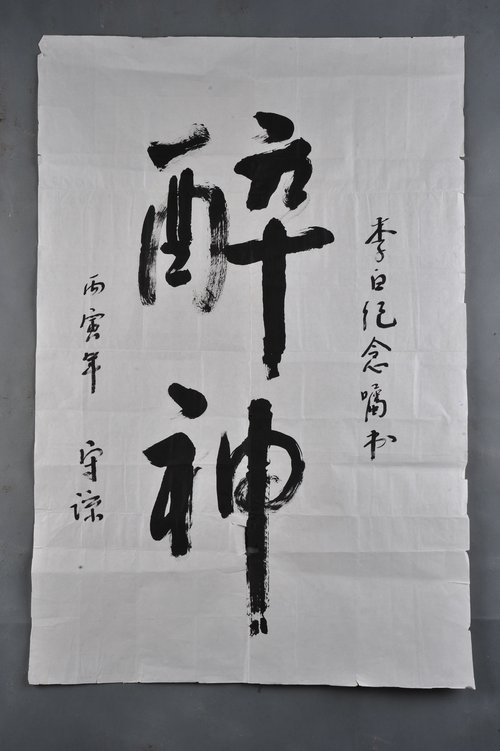 李白纪念嘱书
醉神
丙寅年 守谍